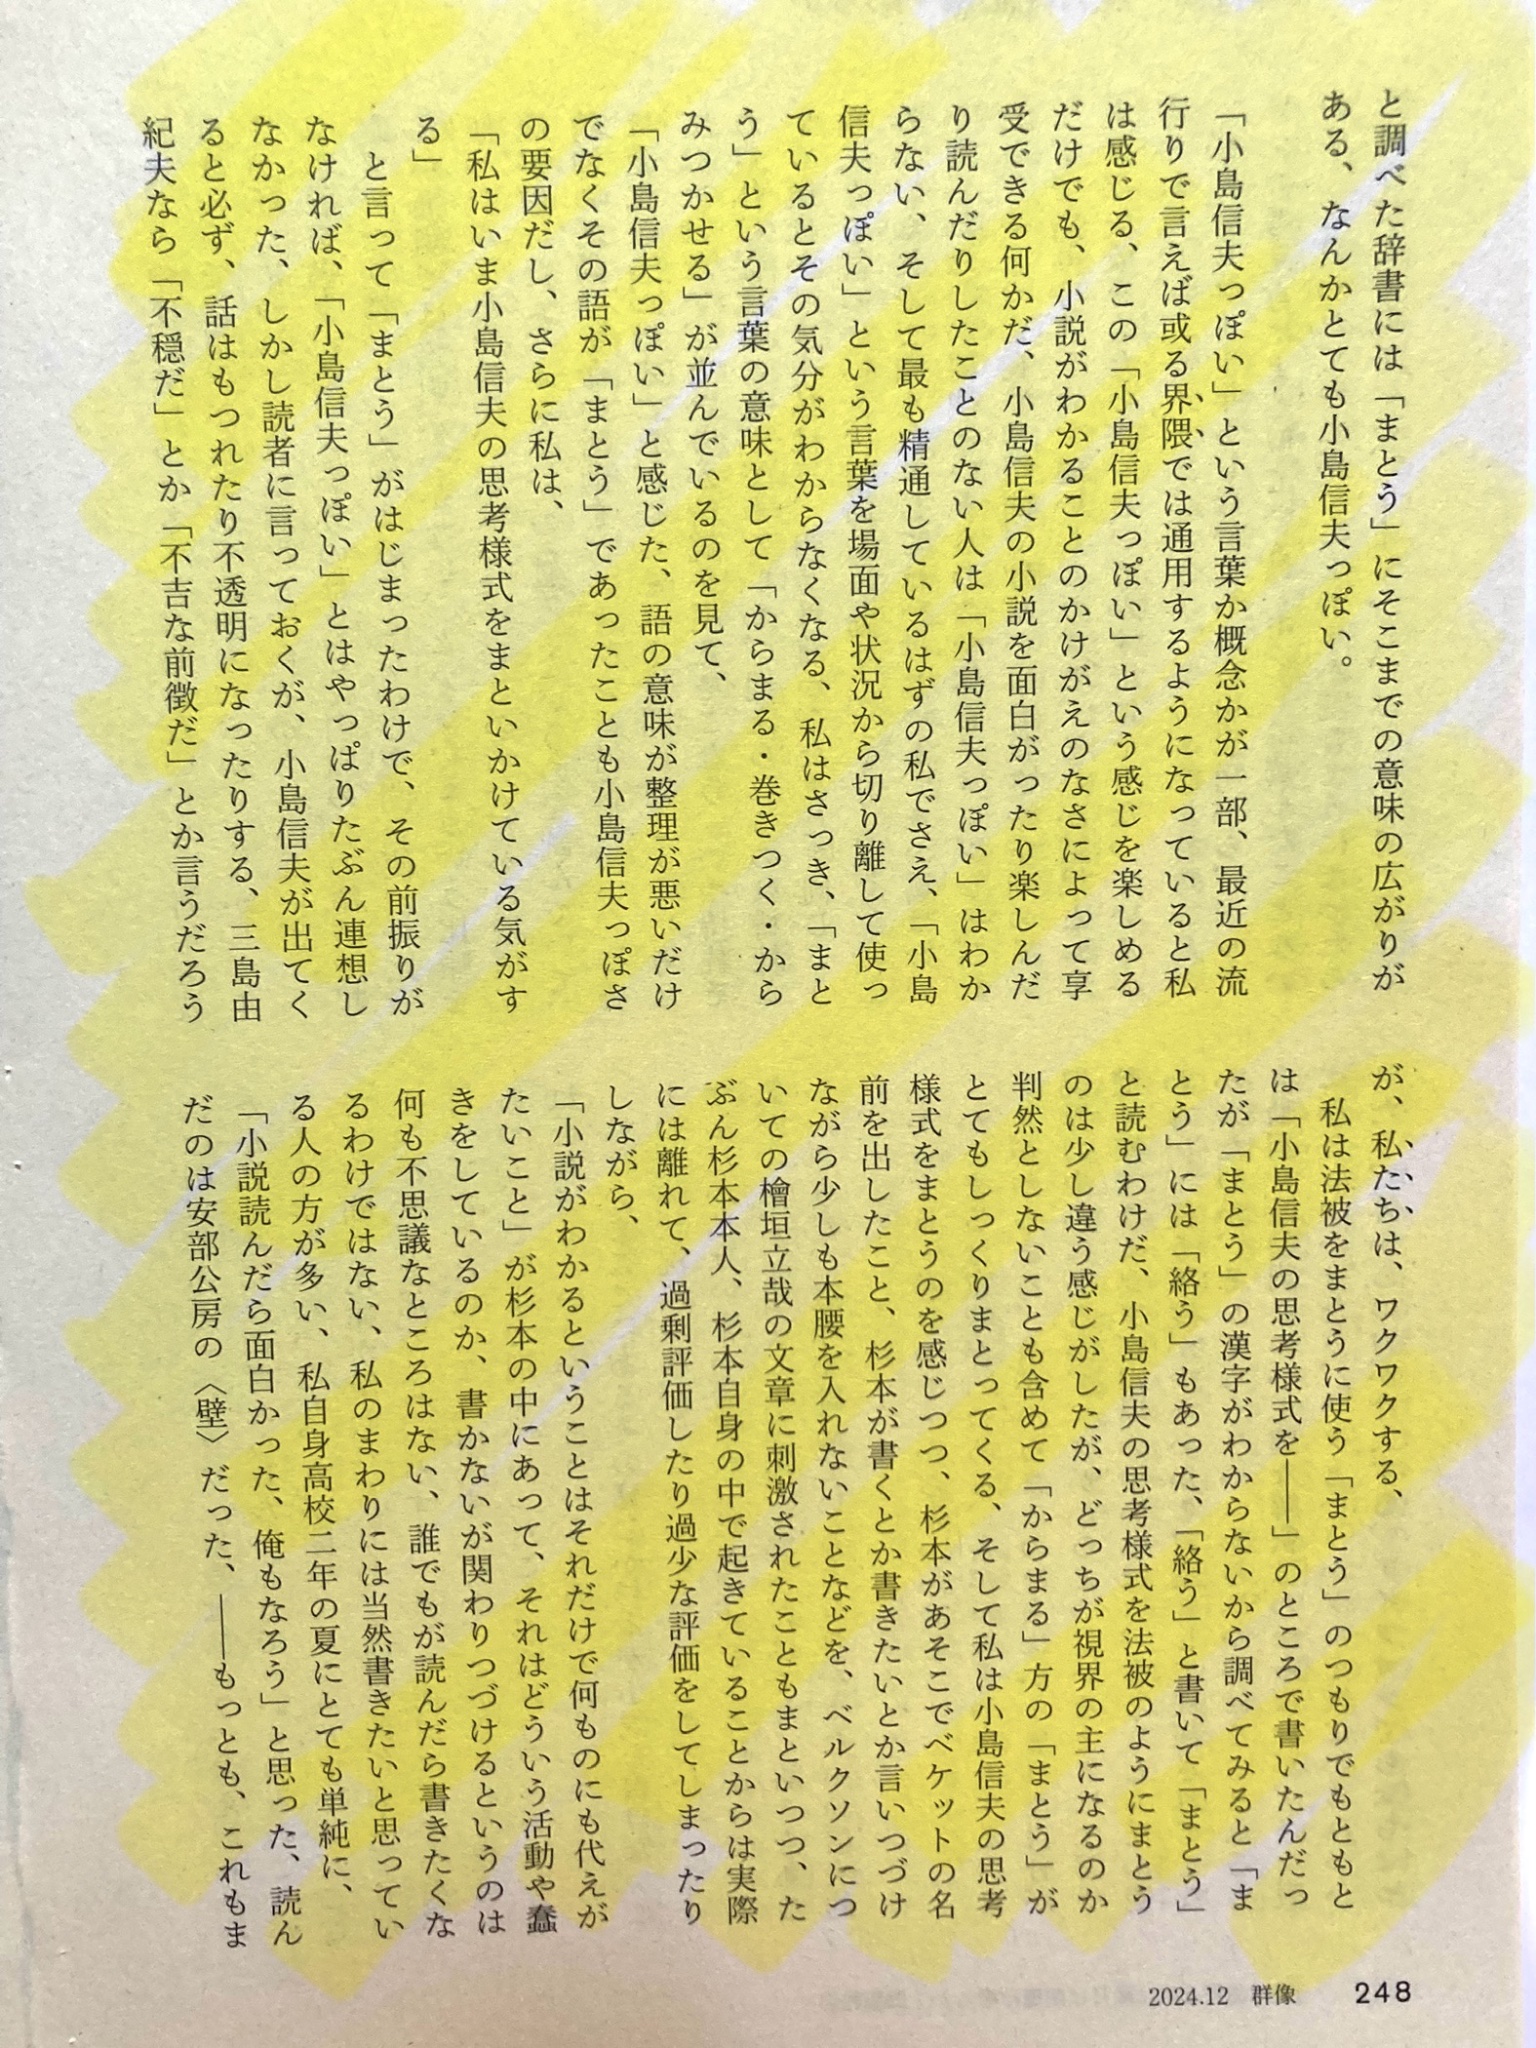 と調べた辞書には「まとう」にそこまでの意味の広がりが
ある、なんかとても小島信夫っぽい。
「小島信夫っぽい」という言葉か概念かが一部、最近の流
行りで言えば或る界隈では通用するようになっていると私
は感じる、この「小島信夫っぽい」という感じを楽しめる
だけでも、小説がわかることのかけがえのなさによって享
受できる何かだ、小島信夫の小説を面白がったり楽しんだ
り読んだりしたことのない人は「小島信夫っぽい」はわか
らない、そして最も精通しているはずの私でさえ、「小島
信夫っぽい」という言葉を場面や状況から切り離して使っ
ているとその気分がわからなくなる、私はさっき、「まと
う」という言葉の意味として「からまる・巻きつく・から
みつかせる」が並んでいるのを見て、
「小島信夫っぽい」と感じた、語の意味が整理が悪いだけ
でなくその語が「まとう」であったことも小島信夫っぽさ
の要因だし、さらに私は、
「私はいま小島信夫の思考様式をまといかけている気がす
る」
と言って「まとう」がはじまったわけで、その前振りが
なければ、「小島信夫っぽい」とはやっぱりたぶん連想し
なかった、しかし読者に言っておくが、小島信夫が出てく
ると必ず、話はもつれたり不透明になったりする、三島由
紀夫なら「不穏だ」とか「不吉な前徴だ」とか言うだろう
が、私たちは、ワクワクする、
私は法被をまとうに使う「まとう」のつもりでもともと
は「小島信夫の思考様式を――」のところで書いたんだっ
たが「まとう」の漢字がわからないから調べてみると「ま
とう」には「絡う」もあった、「絡う」と書いて「まとう」
と読むわけだ、小島信夫の思考様式を法被のようにまとう
のは少し違う感じがしたが、どっちが視界の主になるのか
判然としないことも含めて「からまる」方の「まとう」が
とてもしっくりまとってくる、そして私は小島信夫の思考
様式をまとうのを感じつつ、杉本があそこでベケットの名
前を出したこと、杉本が書くとか書きたいとか言いつづけ
ながら少しも本腰を入れないことなどを、ベルクソンにつ
いての檜垣立哉の文章に刺激されたこともまといつつ、た
ぶん杉本本人、杉本自身の中で起きていることからは実際
には離れて、過剰評価したり過少な評価をしてしまったり
しながら、
「小説がわかるということはそれだけで何ものにも代えが
たいこと」が杉本の中にあって、それはどういう活動や蠢
きをしているのか、書かないが関わりつづけるというのは
何も不思議なところはない、誰でもが読んだら書きたくな
るわけではない、私のまわりには当然書きたいと思ってい
る人の方が多い、私自身高校二年の夏にとても単純に、
「小説読んだら面白かった、俺もなろう」と思った、読ん
だのは安部公房の〈壁〉だった、――もっとも、これもま
2024.12　群像　248